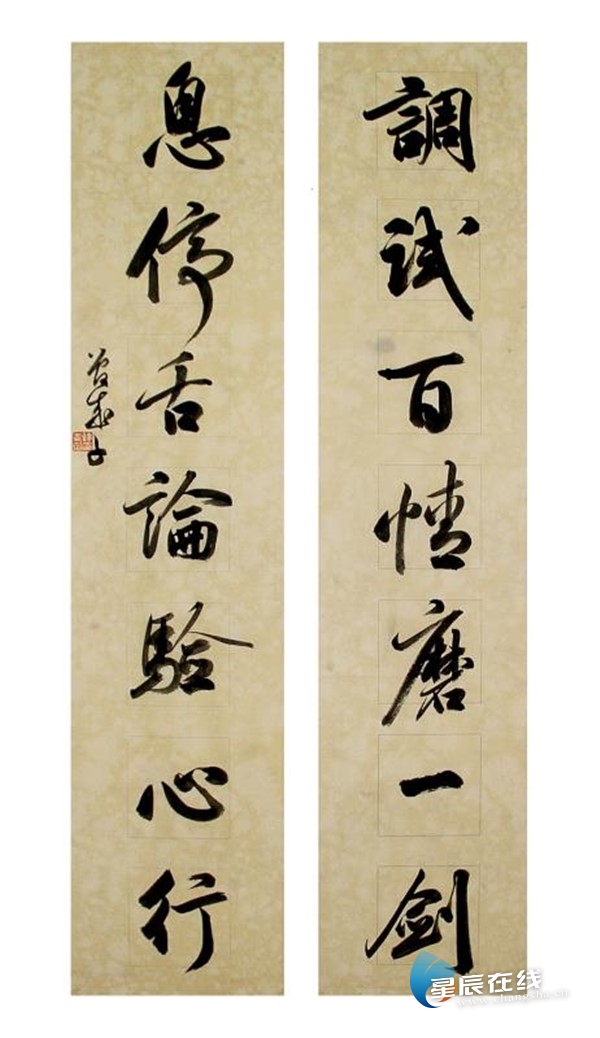 調試百情磨一劍
息停舌論驗心行
星辰在线